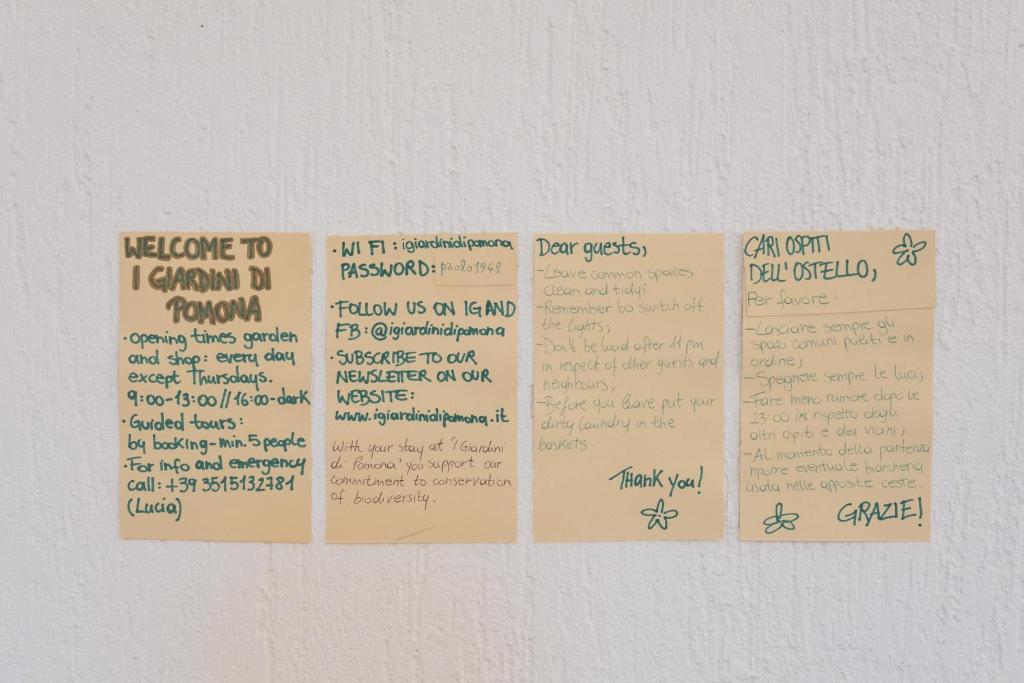 WELCOME TO
I GIARDINI DI
POMONA
• opening times garden
and shop: every day
except Thursdays.
9:00-13:00 // 16:00-dark
• Guided tours:
by booking-min. 5 people
• For info and emergency
call: +39 3515132781
(Lucia)
• WI FI: igiardinidipomona
PASSWORD: paolo1948
• FOLLOW US ON IG AND
FB: @igiardinidipomona
• SUBSCRIBE TO OUR
NEWSLETTER ON OUR
WEBSITE:
www.igiardinidipomona.it
With your stay at 'I Giardini
di Pomona' you support our
commitment to conservation
of biodiversity.
Dear guests,
- Leave common spaces
clean and tidy;
- Remember to switch off
the lights;
- Don't be loud after 11 pm
in respect of other guests and
neighbours;
- Before you leave put your
dirty laundry in the
baskets.
Thank you!
CARI OSPITI
DELL'OSTELLO,
Per favore:
- Lasciare sempre gli
spazi comuni puliti e in
ordine;
- Spegnere sempre le luci;
- Fare meno rumore dopo le
23:00 in rispetto degli
altri ospiti e dei vicini;
- Al momento della partenza
riporre eventuale biancheria
usata nelle apposite ceste.
GRAZIE!